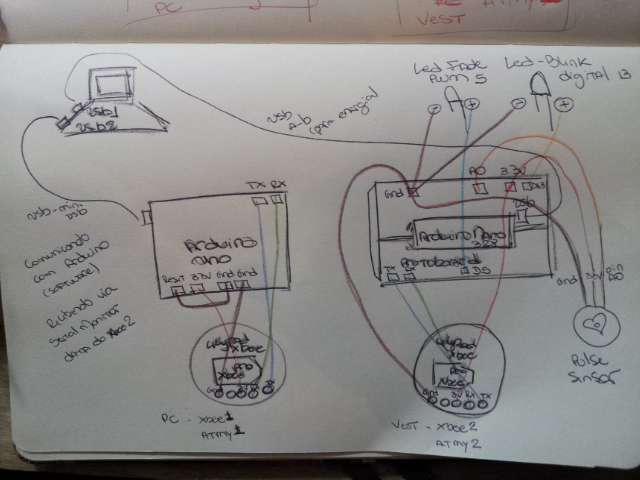 PC
ATMY
VEST
Led Fade
PWM 5
Led-Blink
digital 13
usb1
usb2
usb
A-b
(para energia)
usb-mini
usb
TX RX
Gnd
A0
3.3V
D13
usb
Arduino
uno
Arduino Nano
Protoboard
TX
D5
Comunicando
com Arduino
(software)
Recebendo via
Serial Monitor
data do xbee2
Reset 3.3V Gnd Gnd
Lilypad
xbee
Pro
xbee
Gnd 3V RX TX
Lilypad
xbee
Pro
xbee
Gnd
3V
pin
A0
Pulse
Sensor
PC - xbee1
ATMY1
VEST - xbee2
ATMY2